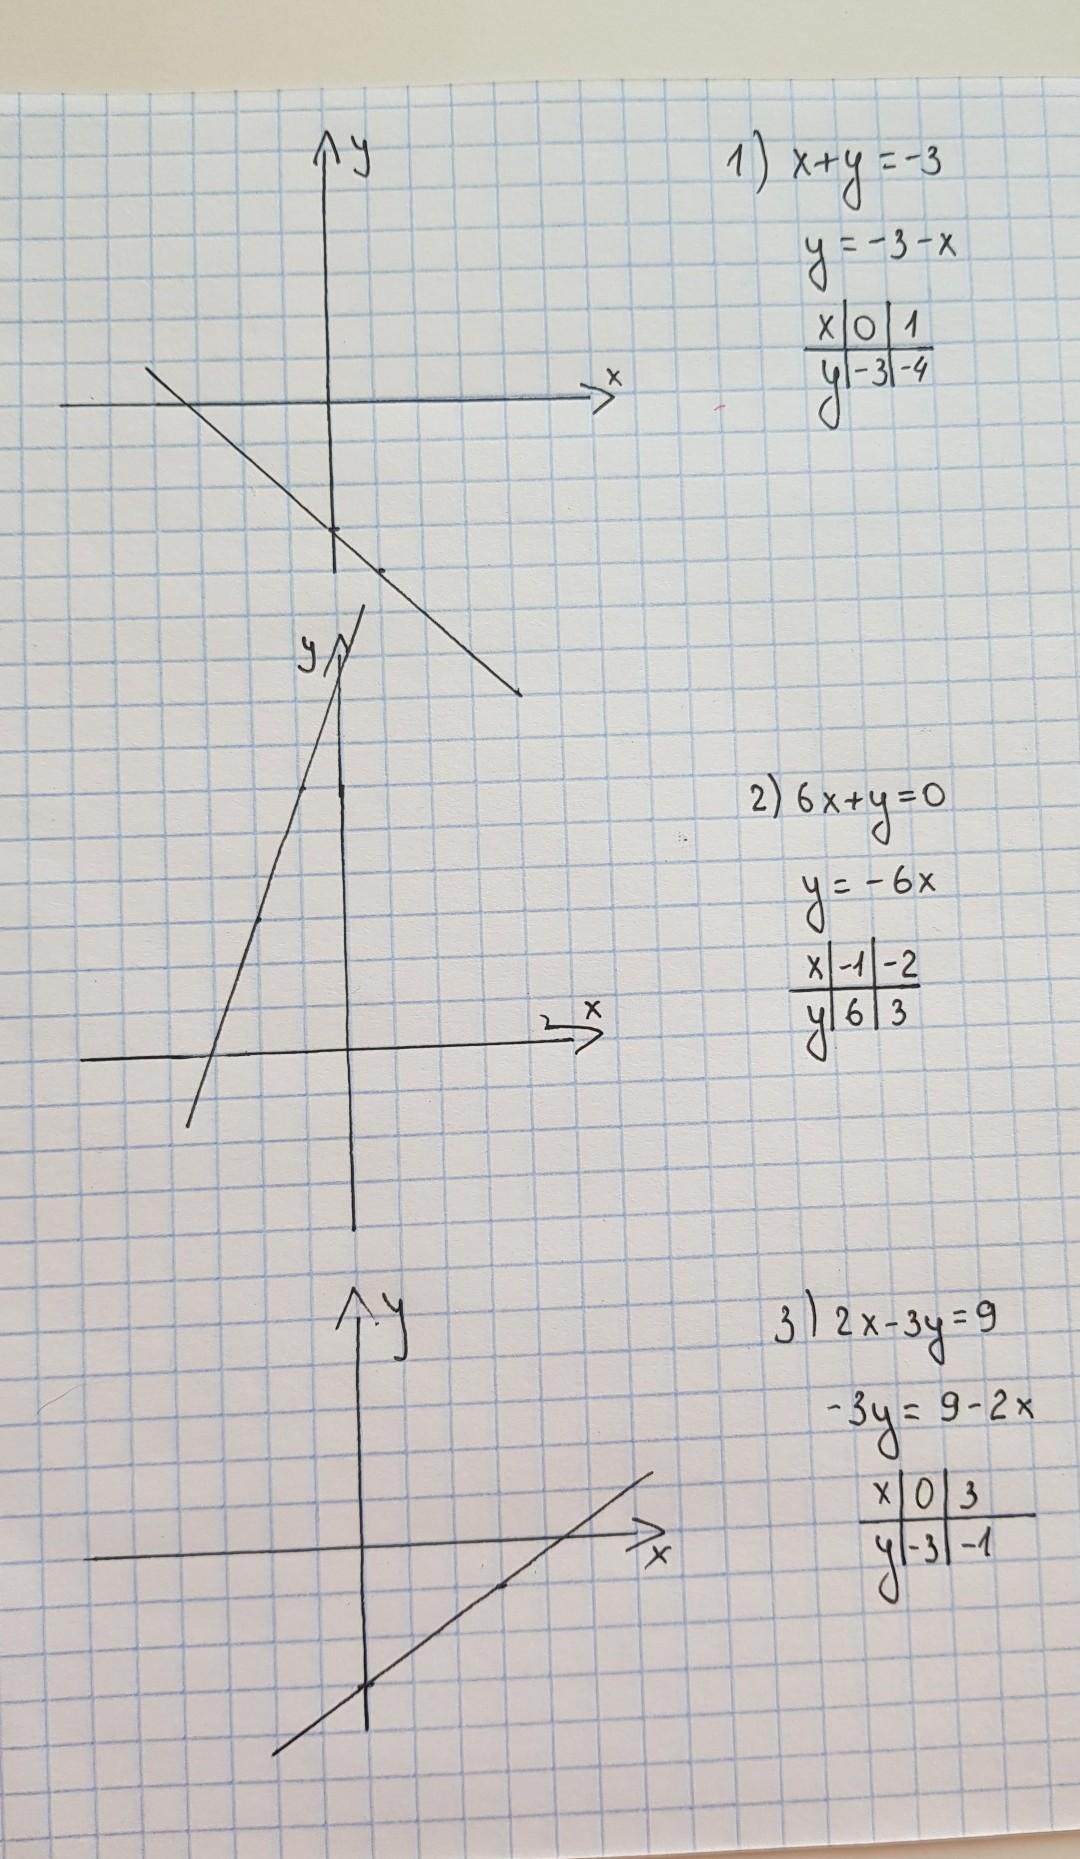 y
1) x+y=-3
y=-3-x
x|0|1
y|-3|-4
x
y
2) 6x+y=0
y=-6x
x|-1|-2
y|6|3
x
y
3) 2x-3y=9
-3y=9-2x
x|0|3
y|-3|-1
x